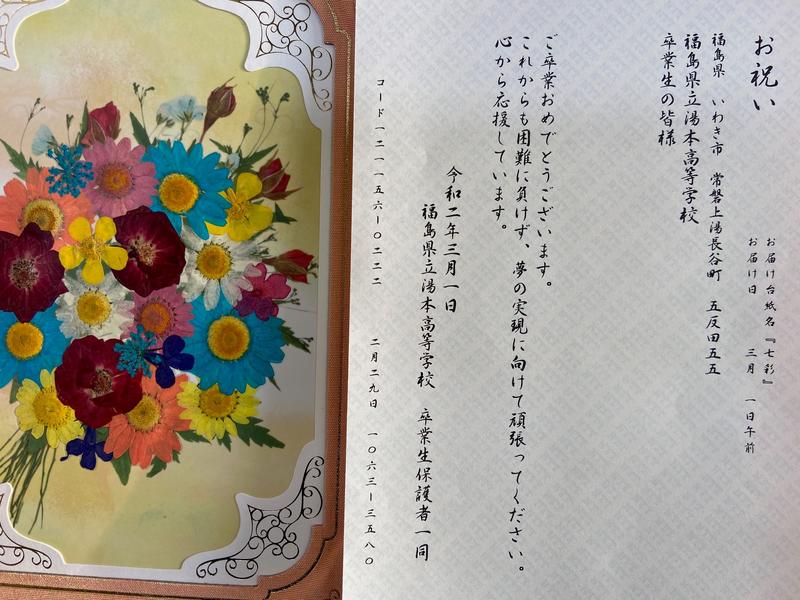 お祝い
お届け台紙名『七彩』
お届け日　三月　一日午前
福島県　いわき市　常磐上湯長谷町　五反田五五
福島県立湯本高等学校
卒業生の皆様
ご卒業おめでとうございます。
これからも困難に負けず、夢の実現に向けて頑張ってください。
心から応援しています。
令和二年三月一日
福島県立湯本高等学校　卒業生保護者一同
コード一二一一五六一〇二二二　二月二九日　一〇六三一三五八〇